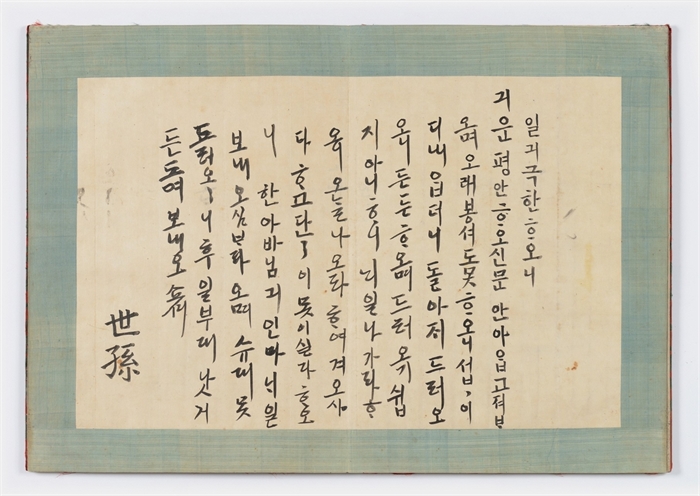 일긔극한ᄒᆞ오니
긔운 평안ᄒᆞ오신 문안 아ᄋᆞᆸ고져 ᄇᆞ라
오며 오래 봉셔도 못 ᄒᆞ오니 섭〃이
디내ᄋᆞᆸ더니 돌아지 드러오
오니 든든ᄒᆞ오며 드러오기 쉽
지 아니ᄒᆞ니 ᄂᆡ일 나가라 ᄒᆞ
오ᄂᆞᆯ 나오라 ᄒᆞ여 겨오시
다 ᄒᆞ고 단〃이 못 이실다 ᄒᆞ오
니 한아바님긔 인마 ᄂᆡ일
보내오심 ᄇᆞ라오며 슈대 못
드러오〃니 후일 부대 낫거
든 ᄃᆞ려 보내오쇼셔
世孫